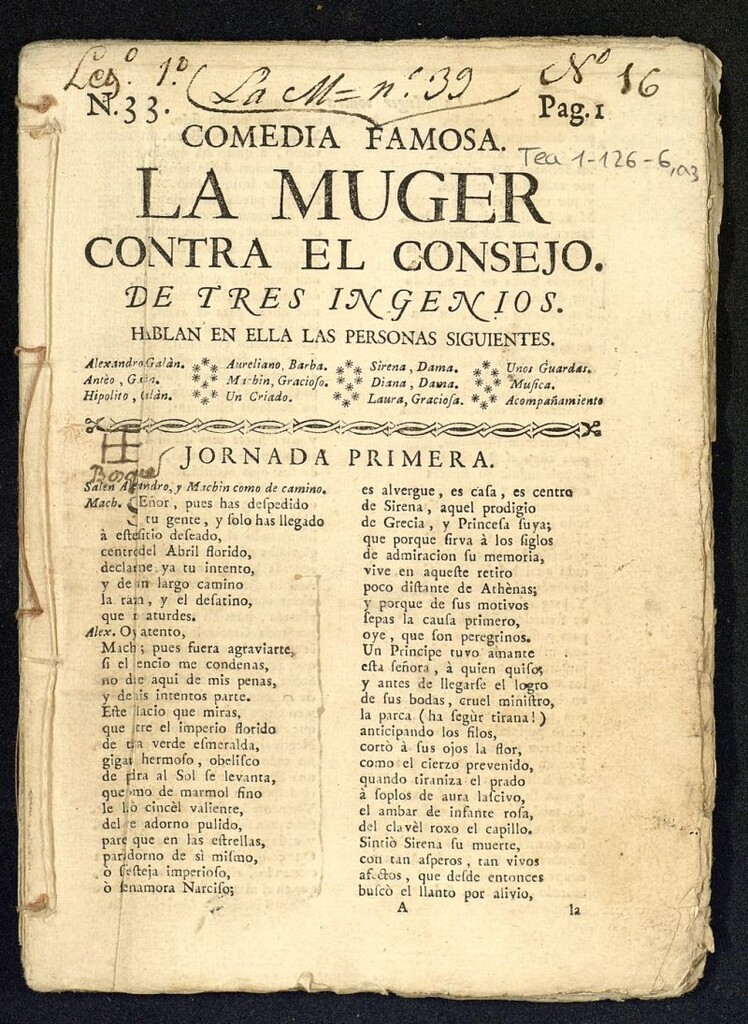 Leg.º 1.º
La M= n.º 39
Nº 16
N.33.
Pag.1
Tea 1-126-6,a3
COMEDIA FAMOSA.
LA MUGER
CONTRA EL CONSEJO.
DE TRES INGENIOS.
HABLAN EN ELLA LAS PERSONAS SIGUIENTES.
Alexandro Galàn.
Antèo, Galàn.
Hipolito, Galàn.
Aureliano, Barba.
Machin, Gracioſo.
Un Criado.
Sirena, Dama.
Diana, Dama.
Laura, Gracioſa.
Unos Guardas.
Muſica.
Acompañamiento
JORNADA PRIMERA.
Boſque
Salen Alexandro, y Machin como de camino.
Mach. SEñor, pues has deſpedido
tu gente, y ſolo has llegado
à eſte ſitio deſeado,
centro del Abril florido,
declarame ya tu intento,
y de un largo camino
la razon, y el deſatino,
que aturdes.
Alex. Oye atento,
Mach; pues fuera agraviarte,
ſi el ſilencio me condenas,
no de aqui de mis penas,
y de mis intentos parte.
Eſte Palacio que miras,
que entre el imperio florido
de eſta verde eſmeralda,
gigante hermoſo, obeliſco
de piedra al Sol ſe levanta,
que como de marmol fino
le cincèl valiente,
del adorno pulido,
parece que en las eſtrellas,
adorno de sì miſmo,
ò feſteja imperioſo,
ò ſe enamora Narciſo;
es alvergue, es caſa, es centro
de Sirena, aquel prodigio
de Grecia, y Princeſa ſuya;
que porque ſirva à los ſiglos
de admiracion ſu memoria,
vive en aqueſte retiro
poco diſtante de Athènas;
y porque de ſus motivos
ſepas la cauſa primero,
oye, que ſon peregrinos.
Un Principe tuvo amante
eſta ſeñora, à quien quiſo;
y antes de llegarſe el logro
de ſus bodas, cruel miniſtro,
la parca (ha ſegùr tirana!)
anticipando los filos,
cortò à ſus ojos la flor,
como el cierzo prevenido,
quando tiraniza el prado
à ſoplos de aura laſcivo,
el ambar de infante roſa,
del clavèl roxo el capillo.
Sintiò Sirena ſu muerte,
con tan aſperos, tan vivos
afectos, que deſde entonces
buſcò el llanto por alivio,
A
la